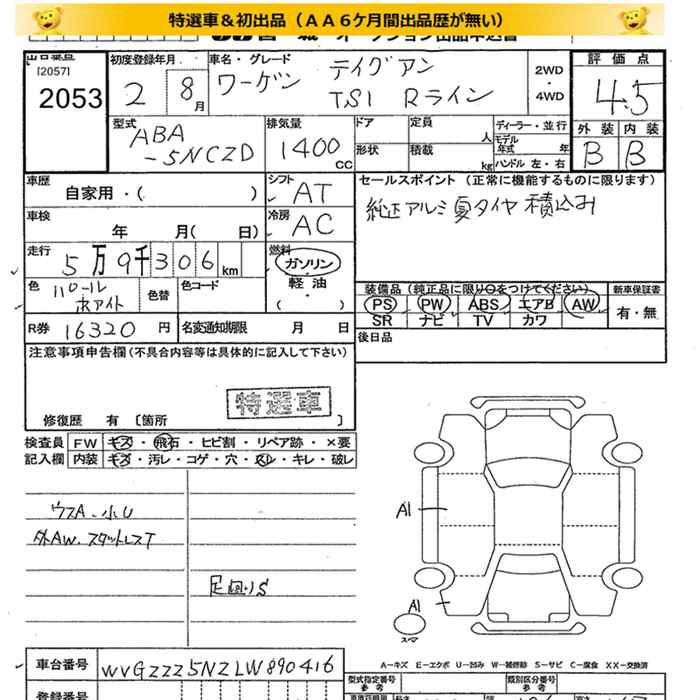 特選車＆初出品（ＡＡ６ケ月間出品歴が無い）
[2057]
2053
初度登録年月
2 8月
車名・グレード
ワーゲン ティグアン
TSI Rライン
2WD
・
4WD
評価点
4.5
外装 内装
B B
型式
ABA
-5NCZD
排気量
1400cc
ドア 定員 人
形状 積載 kg
ディーラー・並行
モデル年式 年
ハンドル 左・右
車歴
自家用・( )
シフト
AT
セールスポイント (正常に機能するものに限ります)
純正アルミ夏タイヤ積込み
車検 年 月( 日)
冷房
AC
走行
5万9千306km
燃料
ガソリン
・
軽油
( ・ )
色
パール
ホワイト
色替
色コード
装備品 (純正品に限り○をつけてください)
PS PW ABS エアB AW
SR ナビ TV カワ
新車保証書
有・無
R券 16320円
名変通知期限 月 日
後日品
注意事項申告欄(不具合内容等は具体的に記入して下さい)
特選車
修復歴 有 〔箇所 〕
検査員
記入欄
FW キズ・飛石・ヒビ割・リペア跡・×要
内装 キズ・汚レ・コゲ・穴・スレ・キレ・破レ
ウスA・小U
外AW.スタットレスT
足回りS
A1
A1
スマ
A－キズ E－エクボ U－凹み W－補修跡 S－サビ C－腐食 XX－交換済
車台番号 WVGZZZ5NZLW890416
型式指定番号
参考
類別区分番号
参考
登録番号